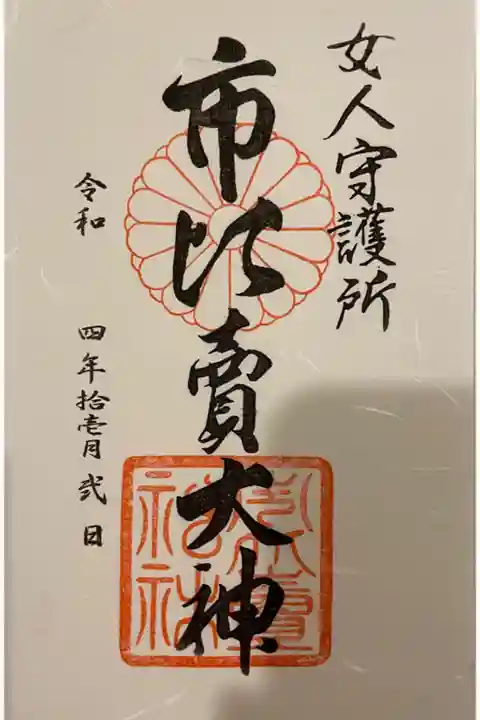 女人守護所
市比賣大神
令和 四年拾壱月弐日